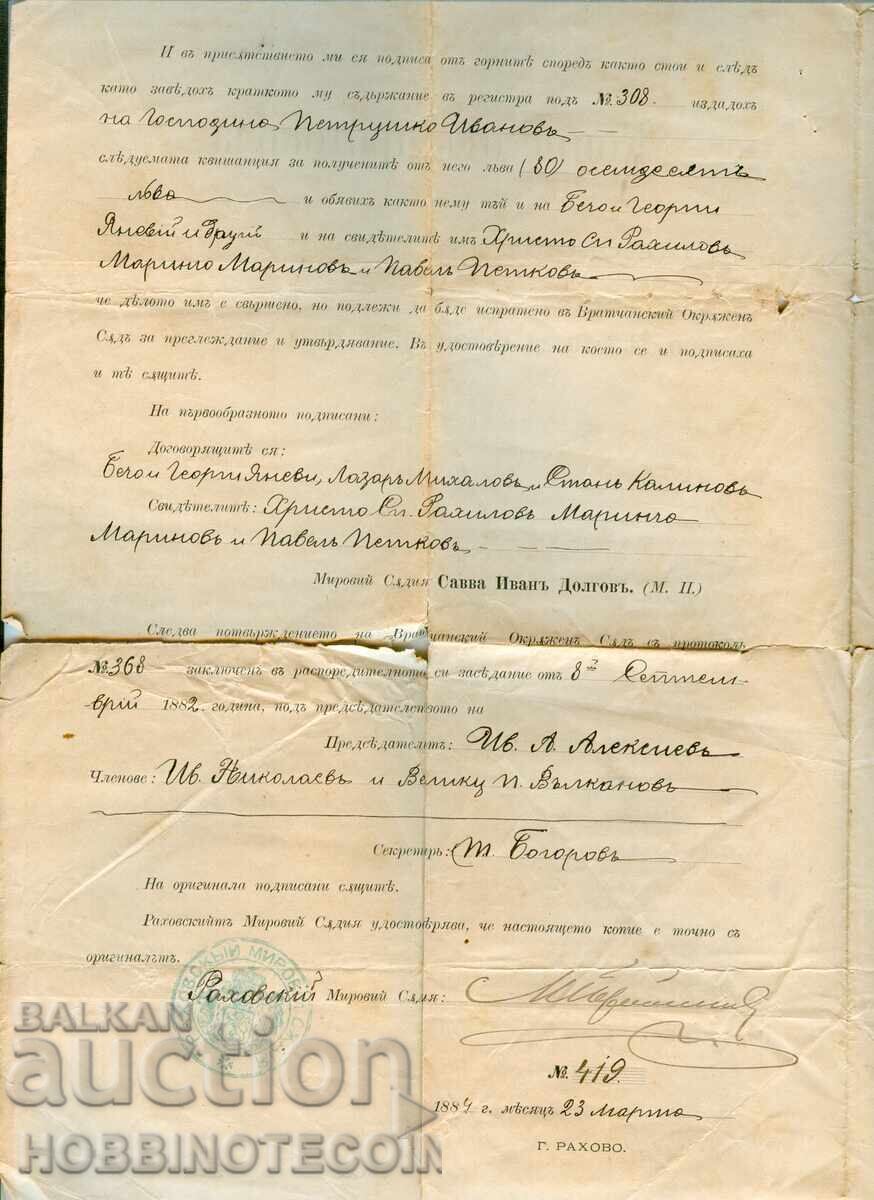 И въ присѫтствието ми ся подписа отъ горнитѣ споредъ както стои и слѣдъ
като заведохъ краткото му съдържание въ регистра подъ №308. издадохъ
на Господина Петрушко Ивановъ
слѣдуемата квитанция за полученитѣ отъ него лъва (80) осемдесятъ
лева и обявихъ както нему тъй и на Бечо и Георги
Яневий и и на свидѣтелитѣ имъ Христо Сп. Рахиловъ
Маринчо Мариновъ и Павелъ Петковъ
че дѣлото имъ е свършено, но подлежи да бѫде испратено въ Вратчанский Окрѫженъ
Сѫдъ за преглеждание и утвърдявание. Въ удостовѣрение на което се и подписаха
и тѣ сѫщитѣ.
На първообразното подписани:
Договорящитѣ ся:
Бечо и Георги Яневи, Лазаръ Михаловъ и Станъ Калиновъ
Свидѣтелитѣ: Христо Сп. Рахиловъ Маринчо
Мариновъ и Павелъ Петковъ
Мировий Сѫдия Савва Иванъ Долговъ. (М. П.)
Следва потвърждението на Вратчанский Окрѫженъ Сѫдъ съ протоколъ
№368 заключенъ въ распоредителното си засѣдание отъ 8й Септем-
врий 1882 година, подъ предсѣдателството на
Предсѣдателтъ: Ив. А. Алексиевъ
Членове: Ив. Николаевъ и Велику п. Вълкановъ
Секретарь: Т. Богоровъ
На оригинала подписани сѫщитѣ.
Раховскийтъ Мировий Сѫдия удостовѣрява, че настоящето копие е точно съ
оригиналътъ.
Раховский Мировий Сѫдия:
№ 419.
1884 г. мѣсяцъ 23 марта
Г. РАХОВО.
BALKAN
auction
HOBBINOTECOIN